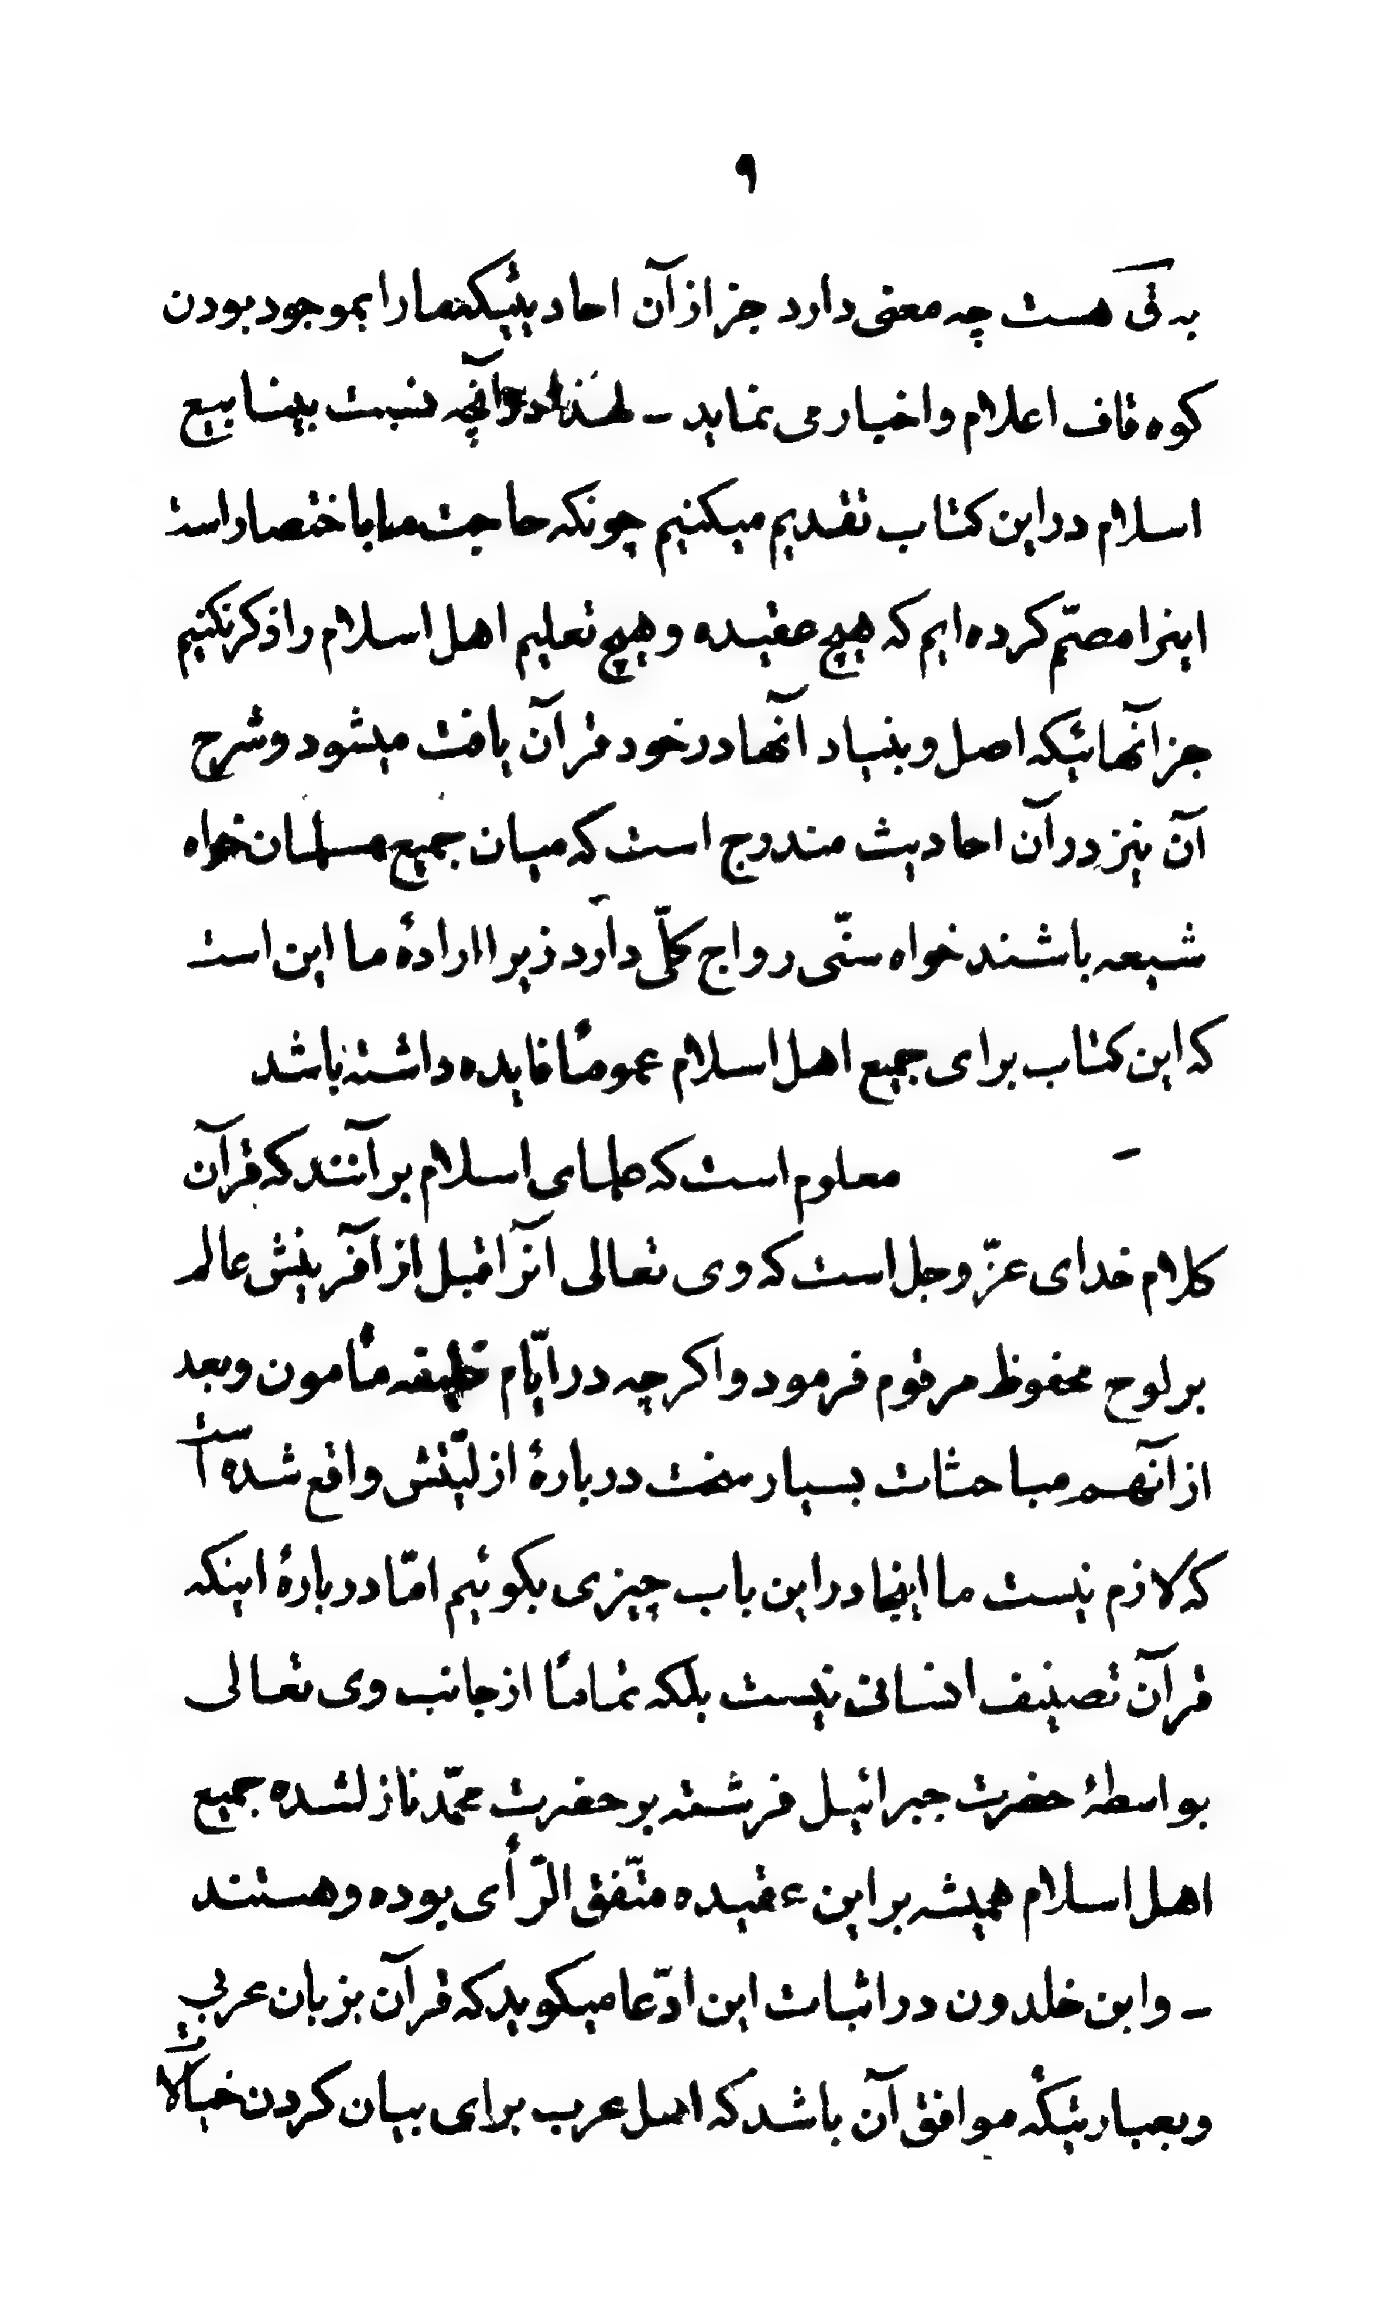 ۹
به ق هست چه معنی دارد جز از آن احادیثیکه ما را بموجود بودن
کوه قاف اعلام و اخبار می نماید – لهذا در آنچه نسبت بینابیع
اسلام در این کتاب تقدیم میکنیم چونکه حاجت ما باختصار است
اینرا مصمّم کرده ایم که هیچ عقیده و هیچ تعلیم اهل اسلام را ذکر نکنیم
جز آنهائیکه اصل و بنیاد آنها در خود قرآن یافت میشود و شرح
آن نیز در آن احادیث مندرج است که میان جمیع مسلمانان خواه
شیعه باشند خواه سنّی رواج کلّی دارد زیرا ارادۀ ما این است
که این کتاب برای جمیع اهل اسلام عموماً فایده داشته باشد
– معلوم است که علمای اسلام بر آنند که قرآن
کلام خدای عزّ و جل است که وی تعالی آنرا قبل از آفرینش عالم
بر لوح محفوظ مرقوم فرمود و اکرچه در ایّام خلیفه مأمون و بعد
از آنهم مباحثات بسیار سخت دربارۀ ازلیّتش واقع شده است
که لازم نیست ما اینجا در این باب چیزی بکوئیم امّا دربارۀ اینکه
قرآن تصنیف انسانی نیست بلکه تماماً از جانب وی تعالی
بواسطۀ حضرت جبرائیل فرشته بر حضرت محمّد نازلشده جمیع
اهل اسلام همیشه بر این عقیده متّفق الرّأی بوده و هستند
– و ابن خلدون در اثبات این ادّعا میکوید که قرآن بزبان عربی
و بعبارتیکه موافق آن باشد که اهل عرب برای بیان کردن خیالات